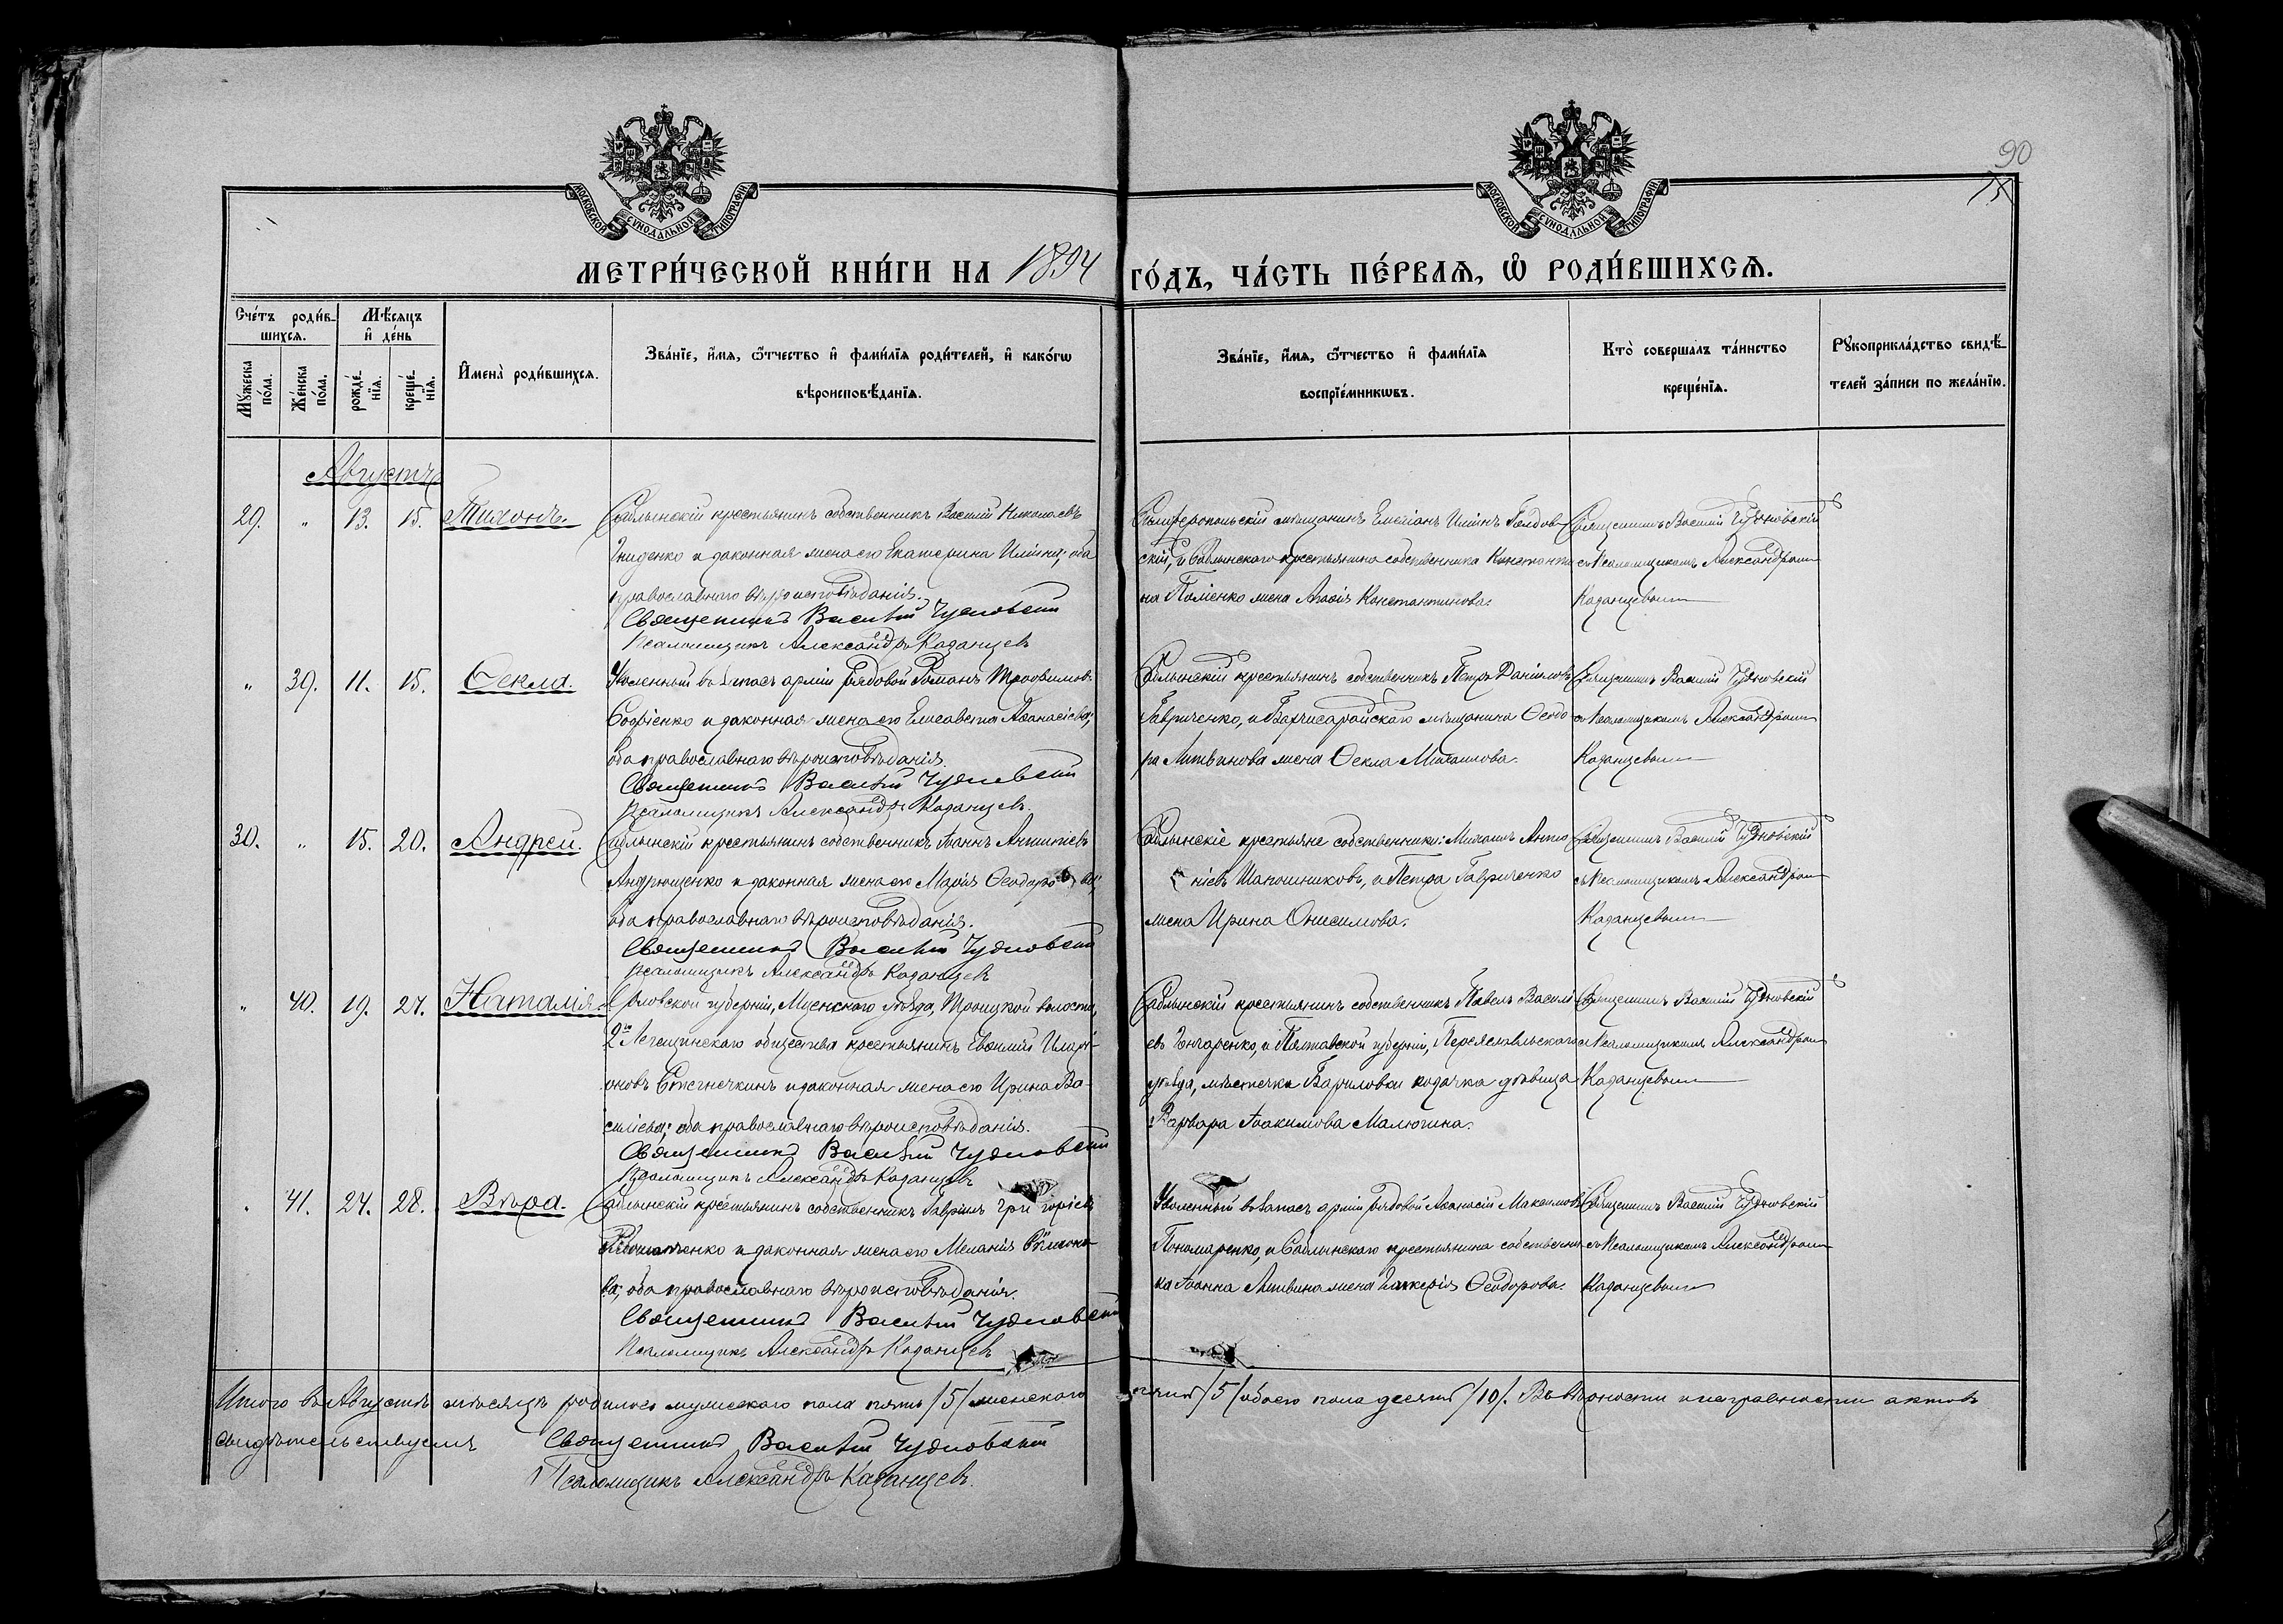 90
15
МОСКОВСКОЙ СУНОДАЛЬНОЙ ТИПОГРАФІИ
МОСКОВСКОЙ СУНОДАЛЬНОЙ ТИПОГРАФІИ
МЕТРИ́ЧЕСКОЙ КНИ́ГИ НА 1894 ГО́ДЪ, ЧА́СТЬ ПЕ́РВАЯ, Ѡ РОДИ́ВШИХСЯ.
Сче́тъ роди́в-
шихся.
Мꙋ́жеска по́ла.
Же́нска по́ла.
Мѣ́сяцъ
и де́нь
рожде́нїя.
креще́нїя.
Имена̀ роди́вшихся.
Зва́нїе, и́мя, ѻ́тчество и фами́лїя роди́телей, и како́гѡ
вѣроисповѣ́данїя.
Зва́нїе, и́мя, ѻ́тчество и фами́лїя
воспрїе́мникѡвъ.
Кто̀ соверша́лъ та́инство
креще́нїя.
Рꙋкоприкла́дство свидѣ́-
телей за́писи по жела́нїю.
Августъ
29. " 13. 15. Тихонъ.
Саблынскій крестьянинъ собственникъ Василій Николаевъ
Гниденко и законная жена его Екатерина Ильина; оба
православнаго вѣроисповѣданія.
Священникъ Василій Чудновскій
Псаломщикъ Александръ Казанцевъ
Симферопольскій мѣщанинъ Емеліанъ Ильинъ
скій, и Саблынскаго крестьянина собственника Константи
на жена Агафія Константинова.
Священникъ Василій Чудновскій
съ Псаломщикомъ Александромъ
Казанцевымъ
" 39. 11. 15. Ѳекла.
Уволенный въ запасъ арміи рядовой Романъ Трофимовъ
Софіенко и законная жена его Елисавета Аѳанасіева;
оба православнаго вѣроисповѣданія.
Священникъ Василій Чудновскій
Псаломщикъ Александръ Казанцевъ.
Саблынскій крестьянинъ собственникъ Петръ Даніиловъ
Гавриченко, и Бахчисарайскаго мѣщанина Ѳеодо
ра Литвинова жена Ѳекла Михаилова.
Священникъ Василій Чудновскій
съ Псаломщикомъ Александромъ
Казанцевымъ
30. " 15. 20. Андрей.
Саблынскій крестьянинъ собственникъ Іоаннъ
Андрющенко и законная жена его Марія Ѳеодорова;
оба православнаго вѣроисповѣданія.
Священникъ Василій Чудновскій
Псаломщикъ Александръ Казанцевъ
Саблынскіе крестьяне собственники: Михаилъ Анто
ніевъ Шапошниковъ, и Петра Гавриченко
жена Ирина Онисимова.
Священникъ Василій Чудновскій
съ Псаломщикомъ Александромъ
Казанцевымъ
" 40. 19. 27. Наталія.
Орловской губерніи, Мценскаго уѣзда, Троицкой волости,
2го общества крестьянинъ Евѳимій Иларі-
оновъ и законная жена его Ирина Ва-
силіева; оба православнаго вѣроисповѣданія.
Священникъ Василій Чудновскій
Псаломщикъ Александръ Казанцевъ
Саблынскій крестьянинъ собственникъ Павелъ Василі
евъ Гончаренко, и Полтавской губерніи, Переяславльскаго
уѣзда, мѣстечка козачка дѣвица
Варвара Іоакимова Малютина.
Священникъ Василій Чудновскій
съ Псаломщикомъ Александромъ
Казанцевымъ
" 41. 24. 28. Вѣра.
Саблынскій крестьянинъ собственникъ Гавріилъ Григоріевъ
и законная жена его Меланія
ва; оба православнаго вѣроисповѣданія.
Священникъ Василій Чудновскій
Псаломщикъ Александръ Казанцевъ
Уволенный въ запасъ арміи рядовой Аѳанасій Максимовъ
Пономаренко, и Саблынскаго крестьянина собственни
ка Іоанна Литвина жена Гликерія Ѳеодорова.
Священникъ Василій Чудновскій
съ Псаломщикомъ Александромъ
Казанцевымъ
Итого въ Августѣ мѣсяцѣ родилось мужескаго пола пять /5/ женскаго пять /5/ обоего пола десять /10/. Въ вѣрности и исправности актовъ
свидѣтельствуемъ Священникъ Василій Чудновскій
Псаломщикъ Александръ Казанцевъ.